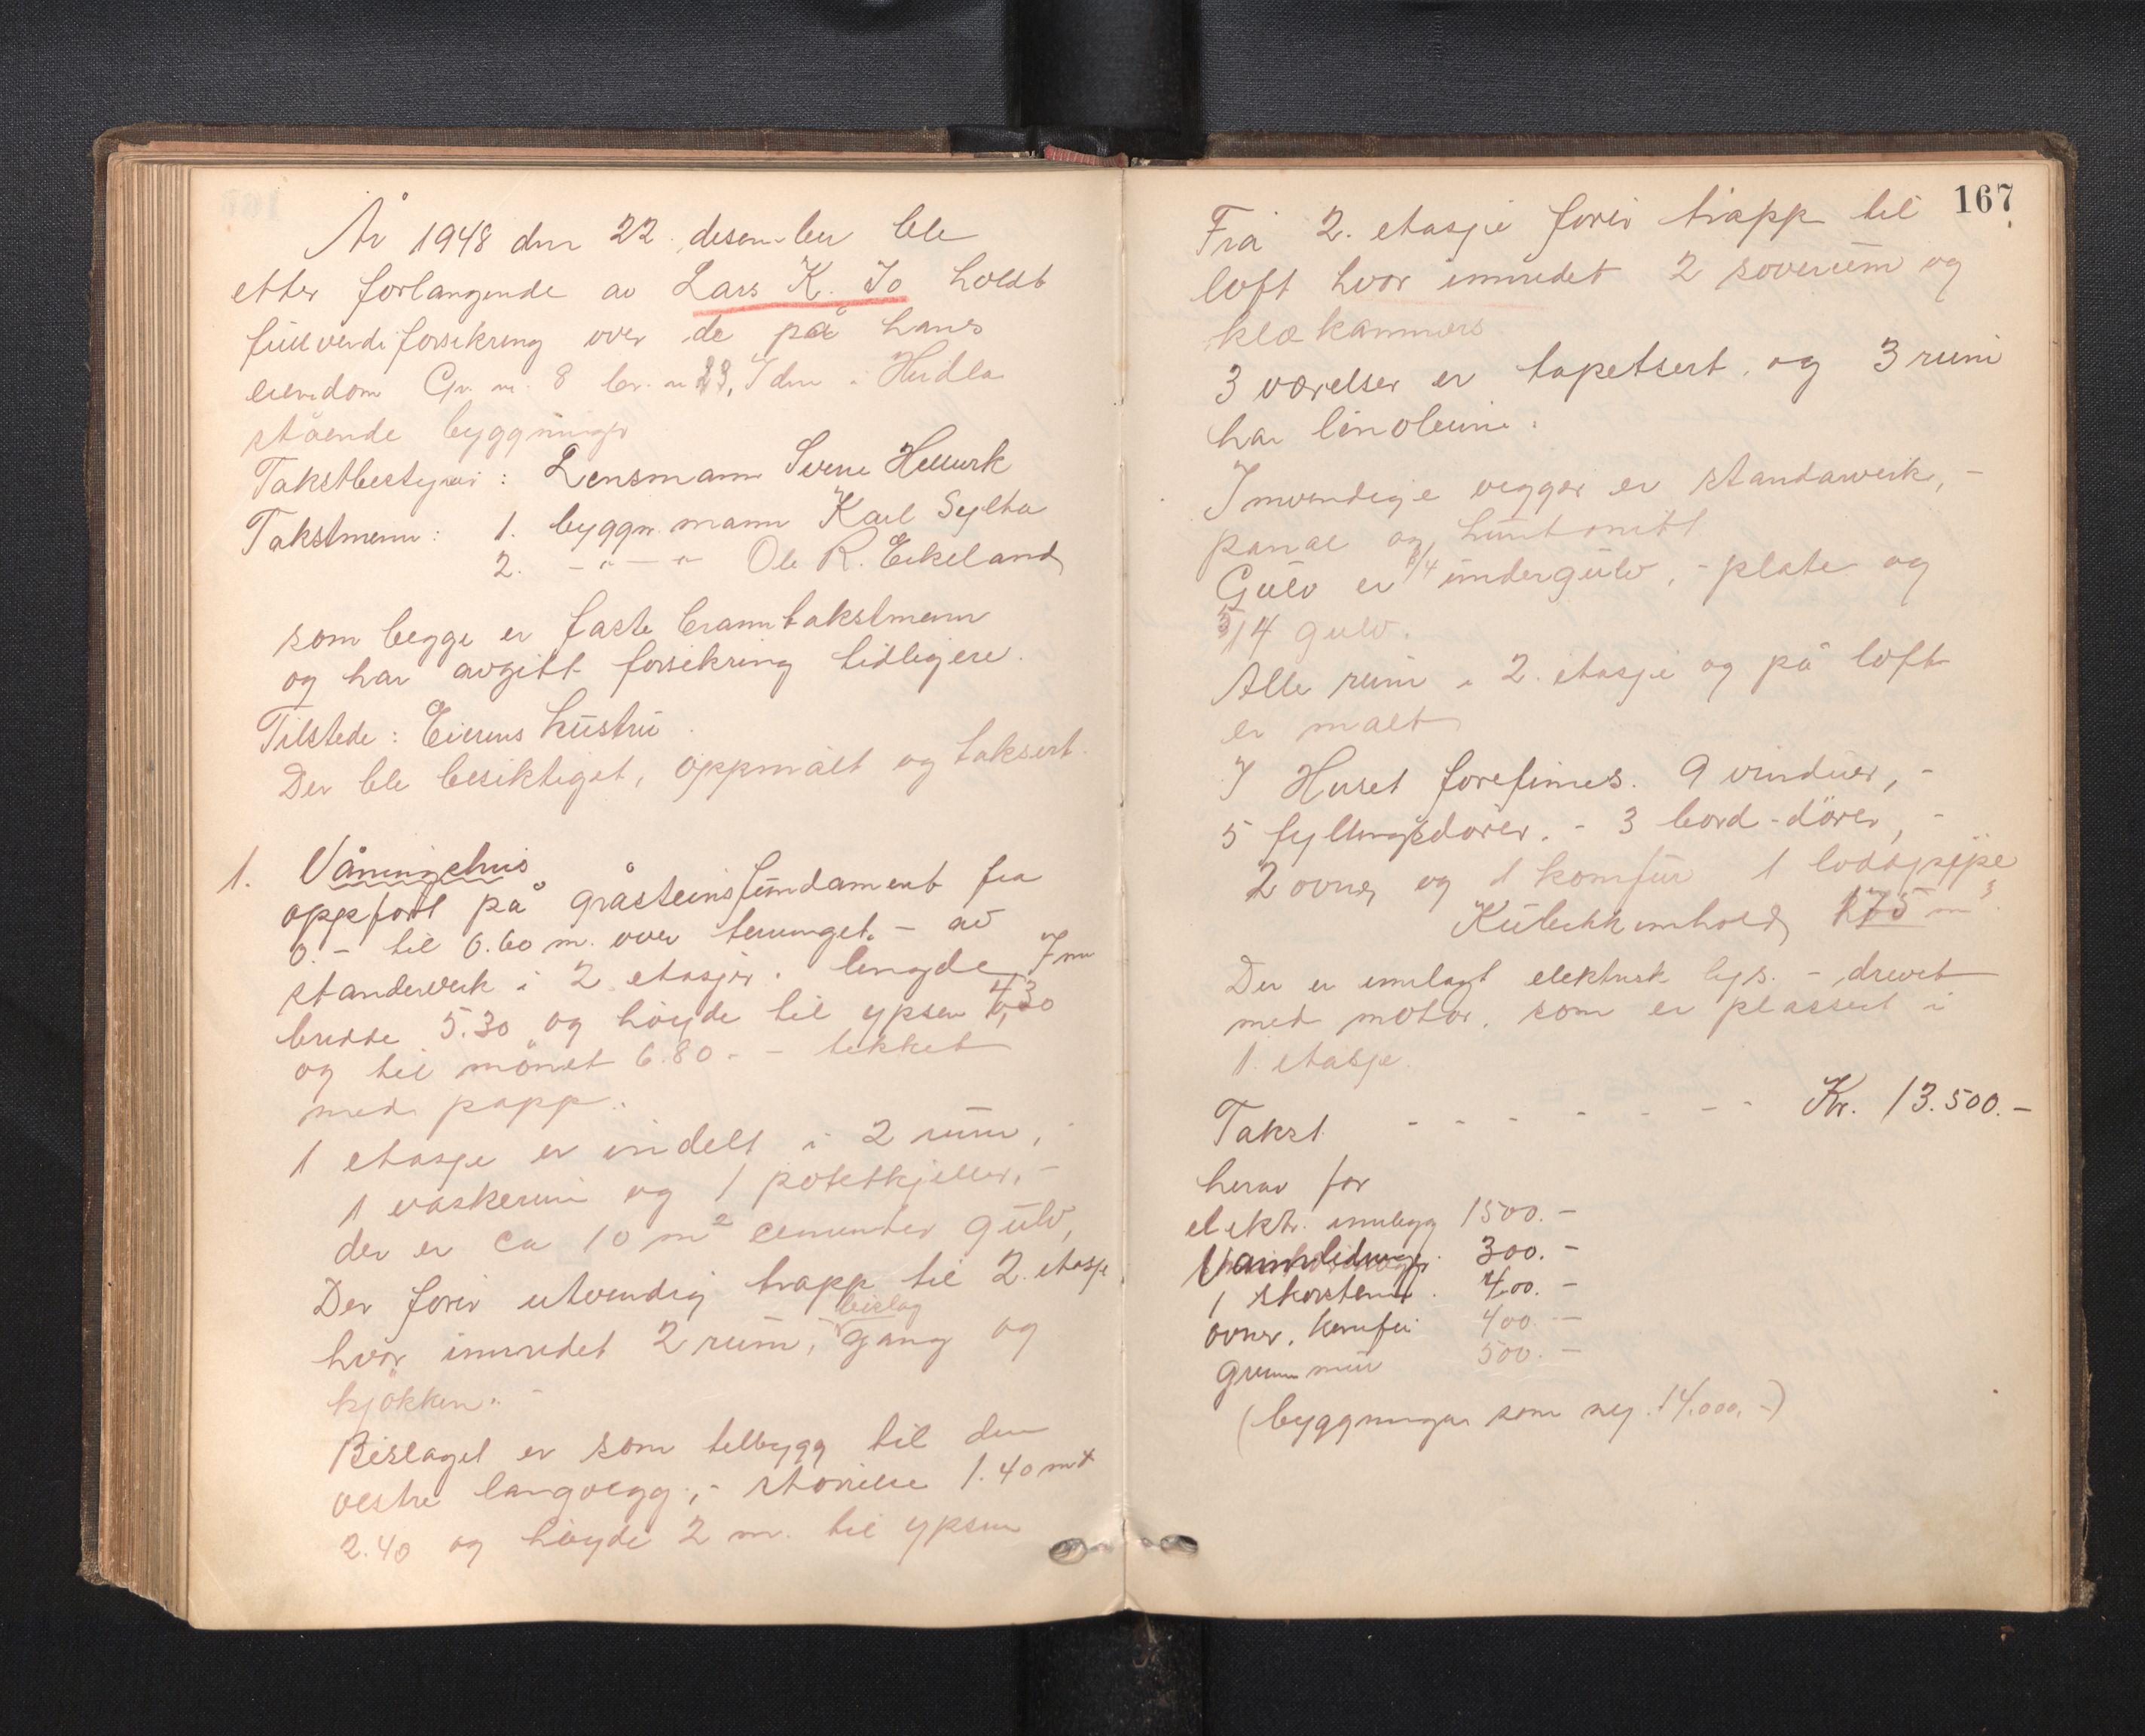 År 1948 den 22. desember ble
etter forlangende av Lars K. Io holdt
fullverdiforsikring over de på hans
eiendom Gr. nr. 8 br. nr 23, i Herdla
stående bygginger
Takstbestyrer : Lensmann Sverre Hellvik
Takstmenn : 1. byggn. mann Karl Sylta
2. - " - " Ole R. Eikeland
som begge er faste branntakstmenn
og har avgitt forsikring tidligere.
Tilstede : Eierens hustru.
Der ble besiktiget, oppmålt og taksert.
1. Våningshus
oppført på gråsteinsfundament fra
0. - til 0.60 m. over terrenget. - av
standerverk i 2 etasjer. lengde 7 m
bredde 5.30 og høyde til ypsen 4,30
og til mønet 6.80. - tekket
med papp.
1 etasje er indelt i 2 rum,
1 vaskerum og 1 potetkjeller, -
der er ca 10 m² cementer gulv,
Der fører utvendig trapp til 2. etasje
bislag
hvor innredet 2 rum, gang og
kjøkken. -
Bislaget er som tilbygg til den
vestre langvegg, - størrelse 1.40 m x
2.40 og høyde 2 m. til ypsen
167
Fra 2. etasje fører trapp til
loft hvor innredet 2 soverum og
klækammers
3 værelser er tapetsert, og 3 rum
har linoleum.
Innvendige vegger er standarverk, -
panal og huntonitt
Gulv er /4 undergulv, - plate og
5/4 gulv.
Alle rum i 2. etasje og på loft
er malt
I Huset forefinnes. 9 vinduer, -
5 fyllingsdører. - 3 bord-dører, -
2 ovner og 1 komfur 1 loddpipe
Kubikkinhold 175 m³.
Der er innlagt elektrisk lys. - drevet
med motor, som er plassert i
1. etasje.
Takst - - - - - - Kr. 13.500.-
herav for
elektr. innlegg 1500. -
Vannledninger. 300. -
1 skorstein . 400. -
ovner, komfur 400. -
grunnmur 500. -
(bygginger som ny. 14.000. -)